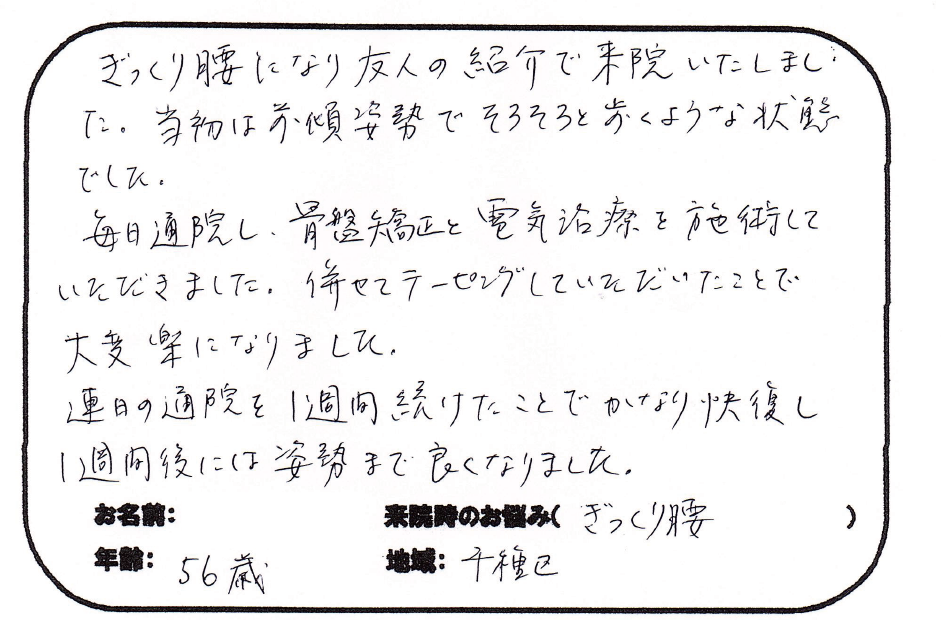 ぎっくり腰になり友人の紹介で来院いたしまし
た。当初は前傾姿勢でそろそろと歩くような状態
でした。
毎日通院し、骨盤矯正と電気治療を施術して
いただきました。併せてテーピングしていただいたことで
大変楽になりました。
連日の通院を1週間続けたことでかなり快復し
1週間後には姿勢まで良くなりました。
お名前: 来院時のお悩み( ぎっくり腰 )
年齢: 56歳 地域: 千種区